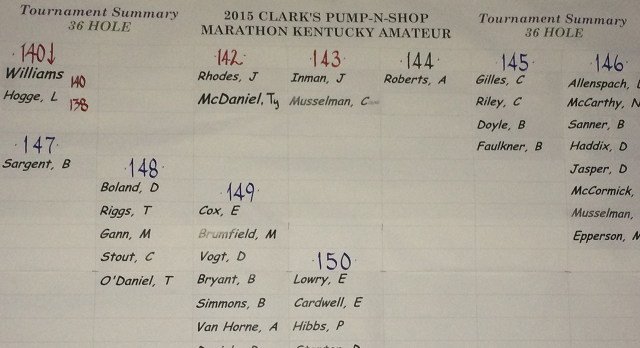 Tournament Summary
36 HOLE
2015 CLARK'S PUMP-N-SHOP
MARATHON KENTUCKY AMATEUR
Tournament Summary
36 HOLE
140↓
Williams 140
Hogge, L 138
142
Rhodes, J
McDaniel, Ty
143
Inman, J
Musselman, C
144
Roberts, A
145
Gilles, C
Riley, C
Doyle, B
Faulkner, B
146
Allenspach,
McCarthy, N
Sanner, B
Haddix, D
Jasper, D
McCormick,
Musselman,
Epperson, M
147
Sargent, B
148
Boland, D
Riggs, T
Gann, M
Stout, C
O'Daniel, T
149
Cox, E
Brumfield, M
Vogt, D
Bryant, B
Simmons, B
Van Horne, A
150
Lowry, E
Cardwell, E
Hibbs, P